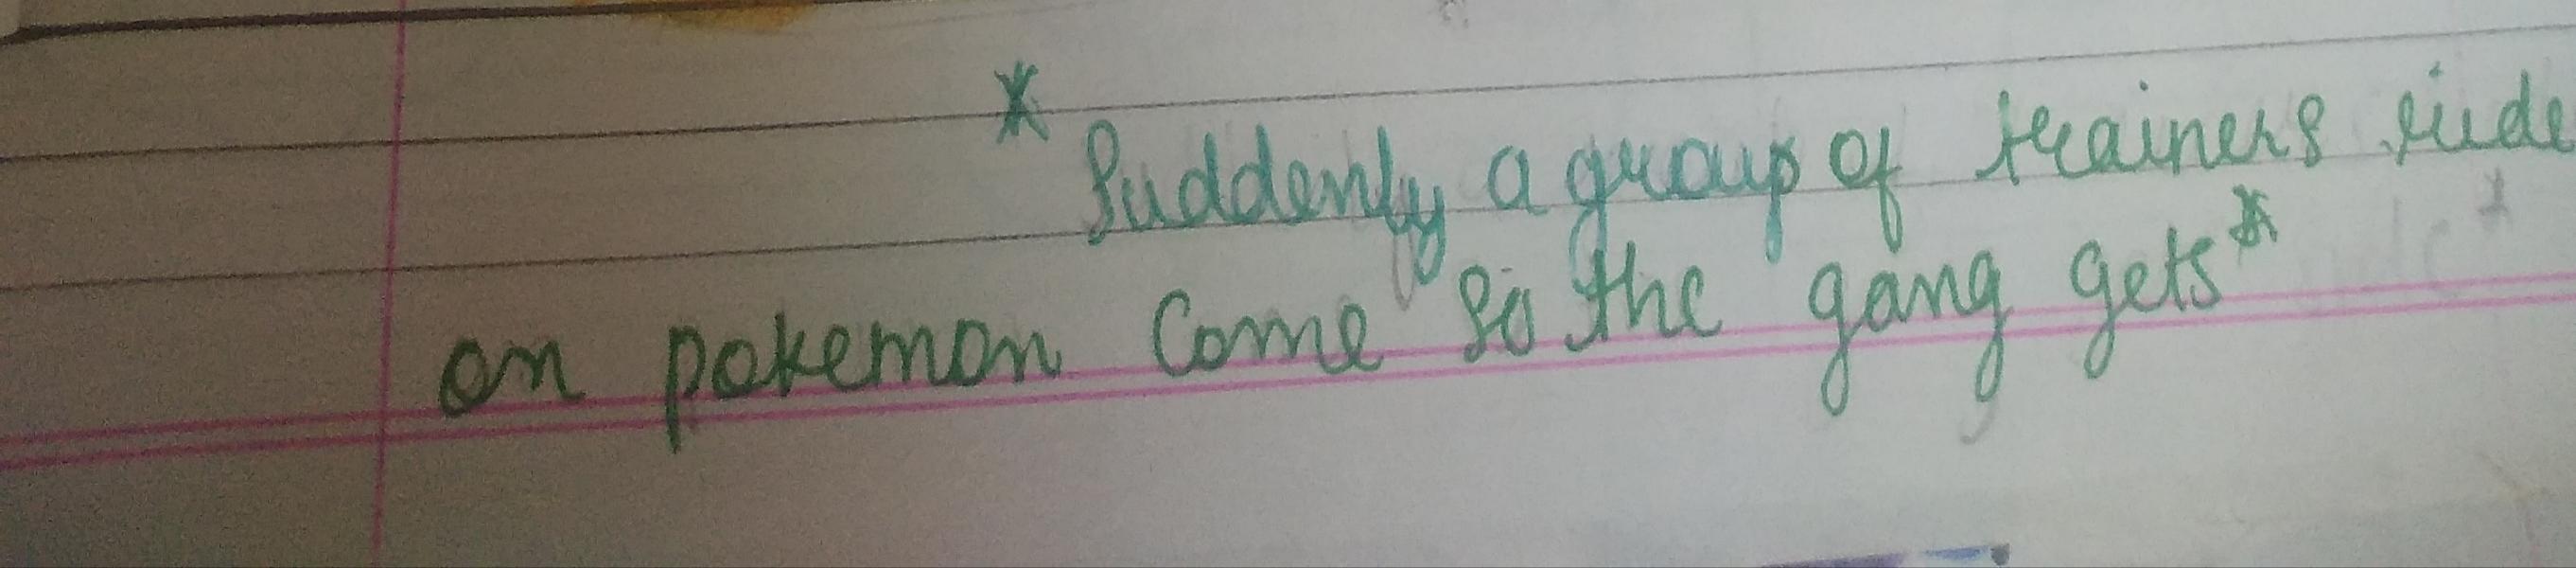 * Suddenly a group of trainers ride
on pokemon come so the gang gets *